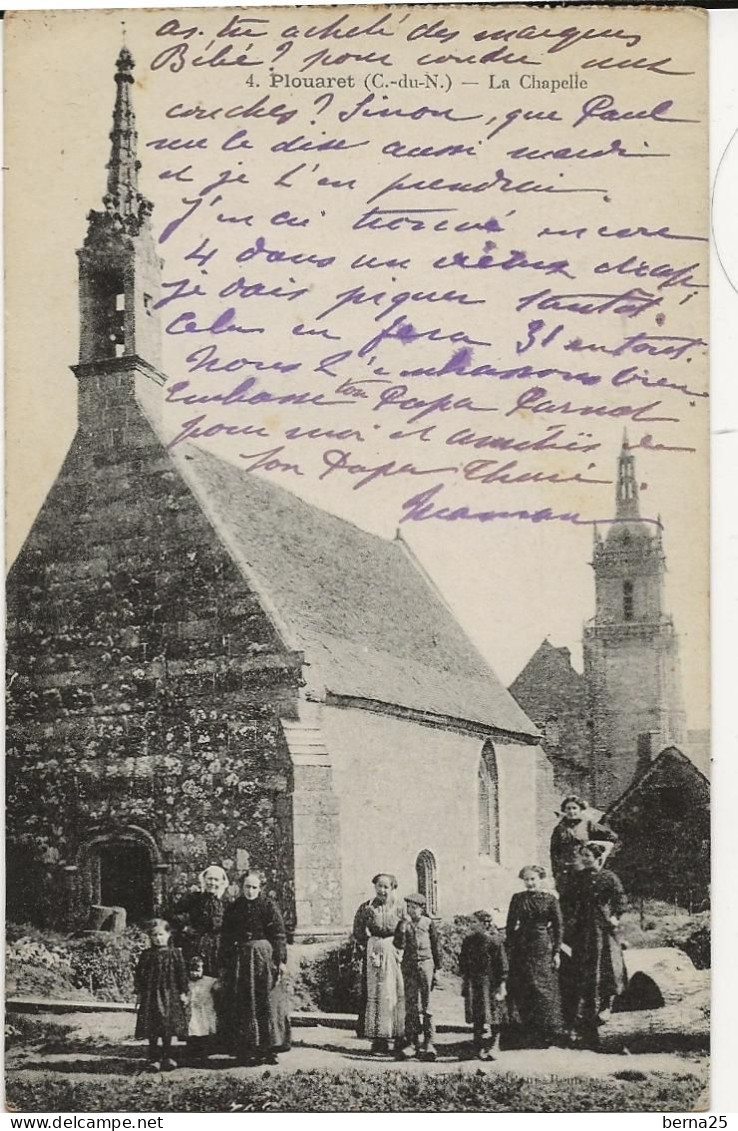 as-tu acheté des marques
Bébé? pour coudre aux
4. Plouaret (C.-du-N.) — La Chapelle
couches? Sinon, que Paul
me le dise aussi mardi
et je t'en prendrai.
J'en ai trouvé encore
4 dans un vieux drap,
je vais piquer tantôt.
Cela en fera 31 en tout.
Nous t'embrassons bien
Embrasse ton Papa
pour moi et amitiés de
ton Papa
Maman
berna25